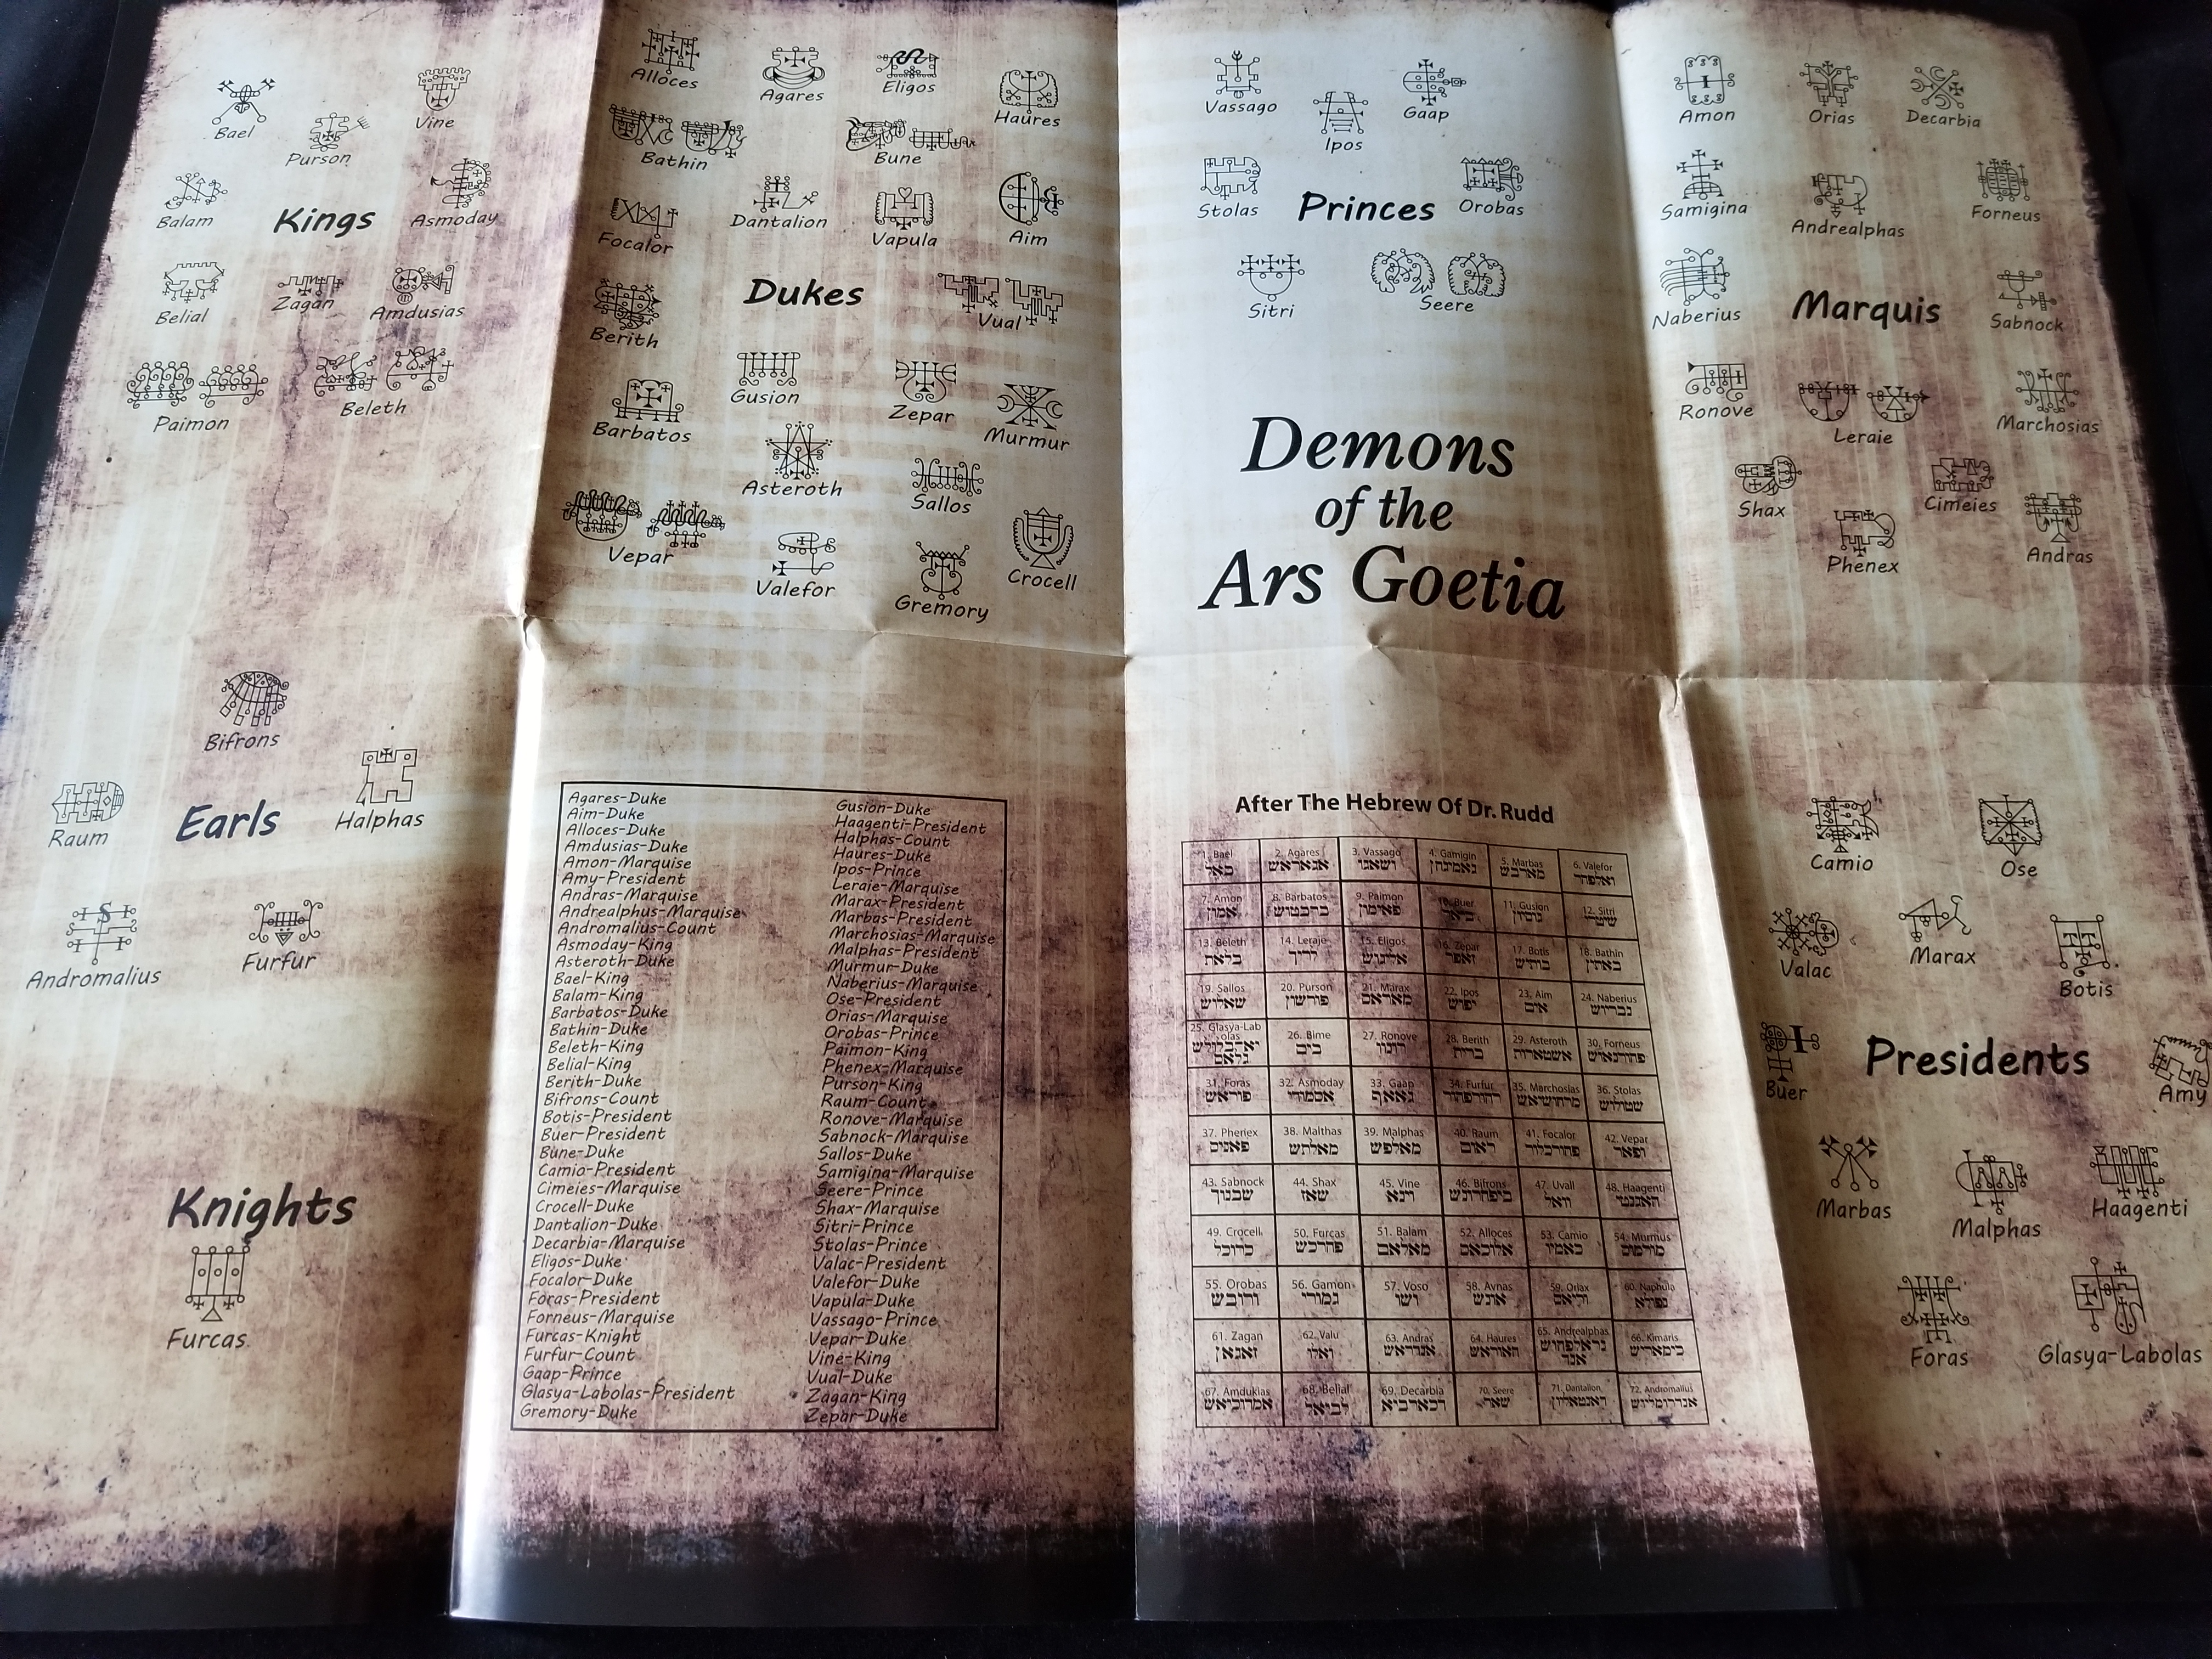 Bael
Purson
Vine
Balam
Kings
Asmoday
Belial
Zagan
Amdusias
Paimon
Beleth
Alloces
Agares
Eligos
Haures
Bathin
Bune
Focalor
Dantalion
Vapula
Aim
Berith
Dukes
Vual
Barbatos
Gusion
Zepar
Murmur
Asteroth
Sallos
Vepar
Valefor
Gremory
Crocell
Vassago
Ipos
Gaap
Stolas
Princes
Orobas
Sitri
Seere
Demons
of the
Ars Goetia
Amon
Orias
Decarbia
Samigina
Andrealphas
Forneus
Naberius
Marquis
Sabnock
Ronove
Leraie
Marchosias
Shax
Cimeies
Phenex
Andras
Bifrons
Raum
Earls
Halphas
Andromalius
Furfur
Knights
Furcas
Agares-Duke
Aim-Duke
Alloces-Duke
Amdusias-Duke
Amon-Marquise
Amy-President
Andras-Marquise
Andrealphus-Marquise
Andromalius-Count
Asmoday-King
Asteroth-Duke
Bael-King
Balam-King
Barbatos-Duke
Bathin-Duke
Beleth-King
Belial-King
Berith-Duke
Bifrons-Count
Botis-President
Buer-President
Bune-Duke
Camio-President
Cimeies-Marquise
Crocell-Duke
Dantalion-Duke
Decarbia-Marquise
Eligos-Duke
Focalor-Duke
Foras-President
Forneus-Marquise
Furcas-Knight
Furfur-Count
Gaap-Prince
Glasya-Labolas-President
Gremory-Duke
Gusion-Duke
Haagenti-President
Halphas-Count
Haures-Duke
Ipos-Prince
Leraie-Marquise
Marax-President
Marbas-President
Marchosias-Marquise
Malphas-President
Murmur-Duke
Naberius-Marquise
Ose-President
Orias-Marquise
Orobas-Prince
Paimon-King
Phenex-Marquise
Purson-King
Raum-Count
Ronove-Marquise
Sabnock-Marquise
Sallos-Duke
Samigina-Marquise
Seere-Prince
Shax-Marquise
Sitri-Prince
Stolas-Prince
Valac-President
Valefor-Duke
Vapula-Duke
Vassago-Prince
Vepar-Duke
Vine-King
Vual-Duke
Zagan-King
Zepar-Duke
After The Hebrew Of Dr. Rudd
1. Bael 2. Agares 3. Vassago 4. Gamigin 5. Marbas 6. Valefor
באל אגאראש ושאגו מארבש ואלפהר
7. Amon 8. Barbatos 9. Paimon 10. Buer 11. Gusion 12. Sitri
אמון ברבטוש פאימון גוסיון שיטרי
13. Beleth 14. Leraje 15. Eligos 16. Zepar 17. Botis 18. Bathin
בלאת אליגוש זאפר בוטיש באתין
19. Sallos 20. Purson 21. Marax 22. Ipos 23. Aim 24. Naberius
שאלוש פורשון מאראס יפוש אים נבריוש
25. Glasya-Lab
olas 26. Bime 27. Ronove 28. Berith 29. Asteroth 30. Forneus
בים ברית אשטארות
31. Foras 32. Asmoday 33. Gaap 34. Furfur 35. Marchosias 36. Stolas
פוראש אסמודי גאאף שטולוש
37. Pheriex 38. Malthas 39. Malphas 40. Raum 41. Focalor 42. Vepar
פאנים מאלתש מאלפש ראום ופאר
43. Sabnock 44. Shax 45. Vine 46. Bifrons 47. Uvall 48. Haagenti
שבנוך שאז וינא וואל האגנטי
49. Crocell 50. Furcas 51. Balam 52. Alloces 53. Camio 54. Murmus
כרוכל מאלאם אלוכאס כאמיו
55. Orobas 56. Gamori 57. Voso 58. Avnas 59. Oriax 60. Naphula
ורובש גמורי ושו אונש נפולא
61. Zagan 62. Valu 63. Andras 64. Haures 65. Andrealphas 66. Kimaris
זאגאן ואלו אנדראש האוראש כימאריש
67. Amdukias 68. Belial 69. Decarbia 70. Seere 71. Dantalion 72. Andromalius
אמדוכיאש דכארביא שאר דאנטאליון אנדרומליוש
Camio
Ose
Valac
Marax
Botis
Buer
Presidents
Amy
Marbas
Malphas
Haagenti
Foras
Glasya-Labolas